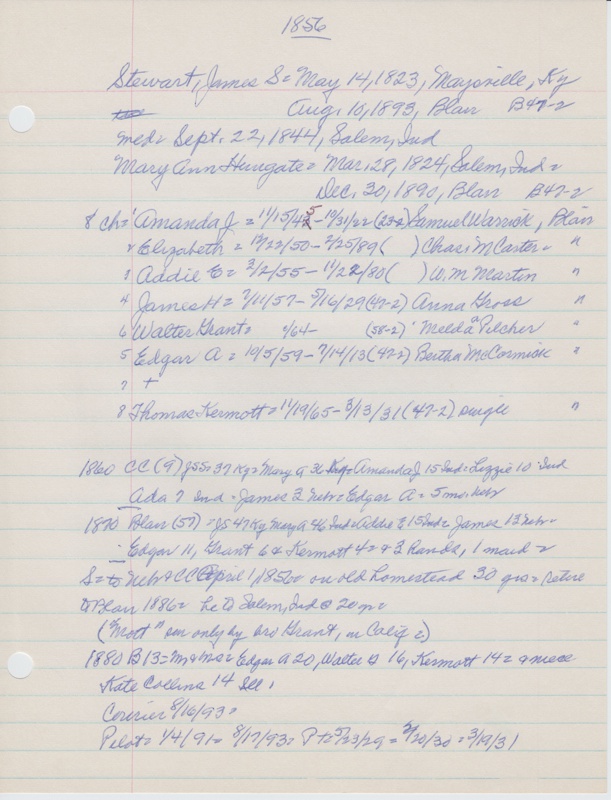 1856
Stewart, James S = May 14, 1823, Maysville, Ky
Aug. 10, 1893, Blair B47-2
med = Sept. 22, 1844, Salem, Ind
Mary Ann Hungate = Mar. 28, 1824, Salem, Ind =
Dec. 30, 1890, Blair B47-2
8 ch = 1 Amanda J = 11/15/45 - 10/31/22 (23-2) Samuel Warrick, Blair
2 Elizabeth = 10/22/50 - 2/25/89 ( ) Chas. M Carter = "
3 Addie E = 3/2/55 - 11/22/80 ( ) W. M Martin "
4 James H = 7/11/57 - 5/16/29 (47-2) Anna Gross "
6 Walter Grant = /64 - (58-2) Melda Pilcher "
5 Edgar A = 10/5/59 - 7/14/13 (47-2) Bertha McCormick "
7 +
8 Thomas Kermott = 11/19/65 - 3/13/31 (47-2) single "
1860 CC (9) JS S = 37 Ky = Mary A 36 = Amanda J 15 Ind = Lizzie 10 Ind
Ada 7 Ind = James 3 Neb = Edgar A = 5 mo Neb
1870 Blair (57) = JS 47 Ky Mary A 46 Ind = Addie E 15 Ind = James 13 Neb =
Edgar 11, Grant 6 & Kermott 4 = & 3 hands, 1 maid =
S = to Neb & CC April 1, 1856 = on old homestead 30 yrs = retire
to Blair 1886 = he to Salem, Ind @ 20 yr =
("Mott" sur only by bro Grant, in Calif =)
1880 B 13 = Mr & Ms = Edgar A 20, Walter G 16, Kermott 14 = a niece
Kate Collins 14 Ill.
Courier 8/16/93 =
Pilot = 1/4/91 = 8/17/93 = P + = 5/23/29 = 2/20/30 = 3/19/31